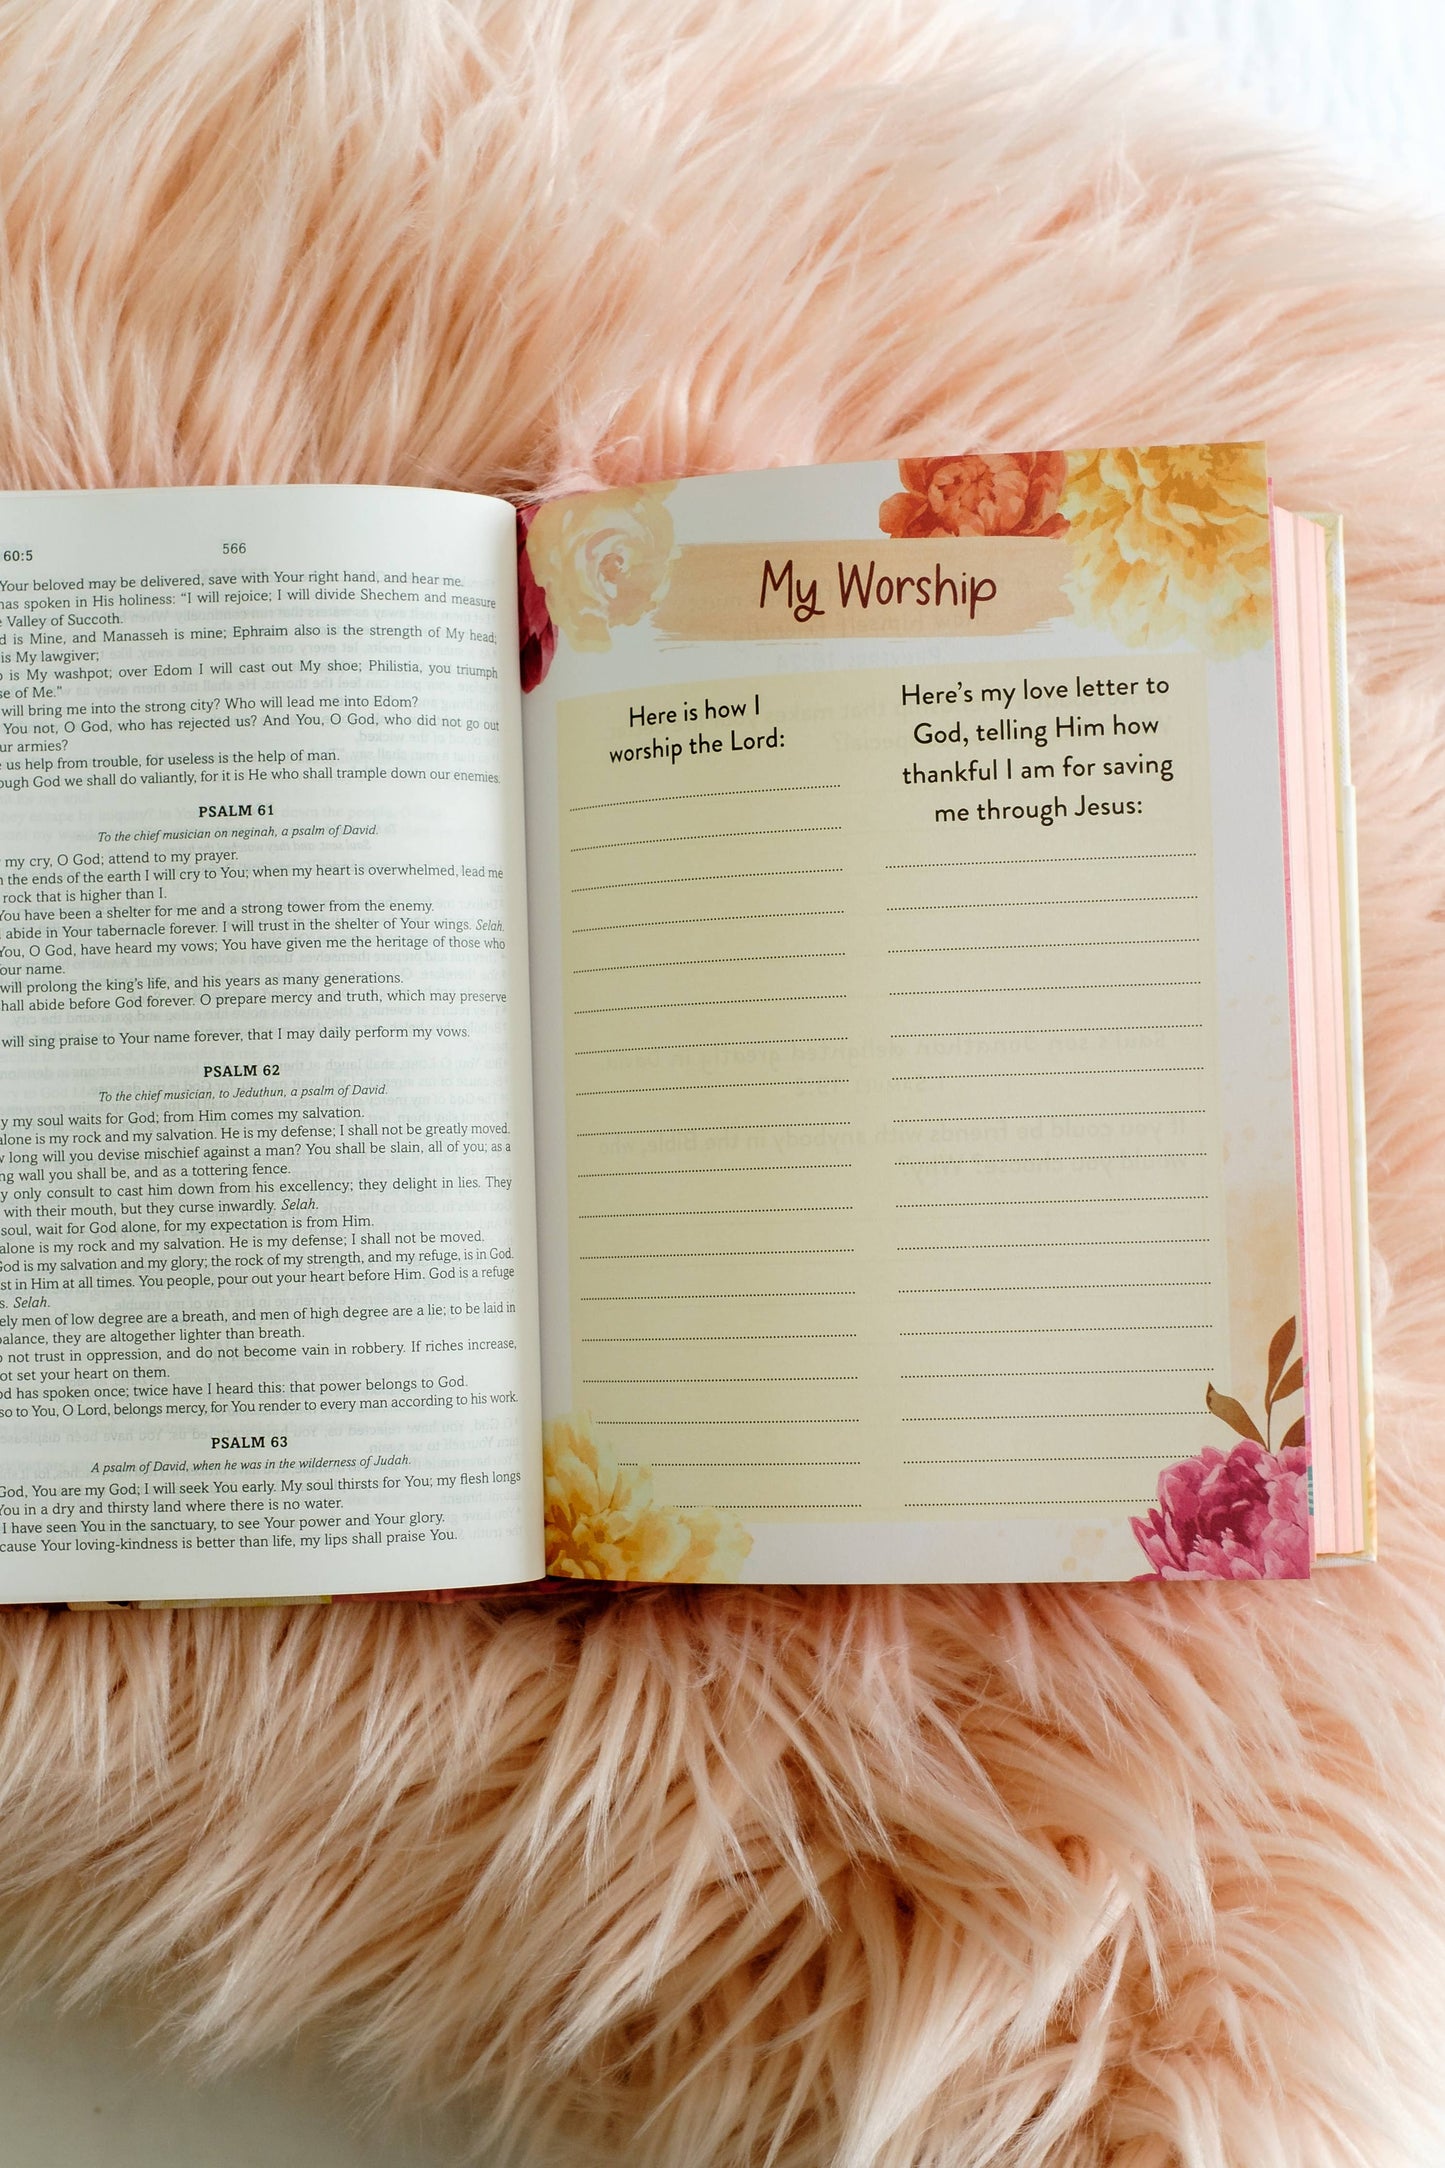 60:5
566
Your beloved may be delivered, save with Your right hand, and hear me.
has spoken in His holiness: “I will rejoice; I will divide Shechem and measure
Valley of Succoth.
is Mine, and Manasseh is mine; Ephraim also is the strength of My head;
is My lawgiver;
is My washpot; over Edom I will cast out My shoe; Philistia, you triumph
of Me.”
will bring me into the strong city? Who will lead me into Edom?
You not, O God, who has rejected us? And You, O God, who did not go out
armies?
us help from trouble, for useless is the help of man.
God we shall do valiantly, for it is He who shall trample down our enemies.
PSALM 61
To the chief musician on neginah, a psalm of David.
my cry, O God; attend to my prayer.
the ends of the earth I will cry to You; when my heart is overwhelmed, lead me
rock that is higher than I.
You have been a shelter for me and a strong tower from the enemy.
abide in Your tabernacle forever. I will trust in the shelter of Your wings. Selah.
You, O God, have heard my vows; You have given me the heritage of those who
name.
will prolong the king’s life, and his years as many generations.
shall abide before God forever. O prepare mercy and truth, which may preserve
will sing praise to Your name forever, that I may daily perform my vows.
PSALM 62
To the chief musician, to Jeduthun, a psalm of David.
my soul waits for God; from Him comes my salvation.
alone is my rock and my salvation. He is my defense; I shall not be greatly moved.
long will you devise mischief against a man? You shall be slain, all of you; as a
wall you shall be, and as a tottering fence.
only consult to cast him down from his excellency; they delight in lies. They
with their mouth, but they curse inwardly. Selah.
soul, wait for God alone, for my expectation is from Him.
alone is my rock and my salvation. He is my defense; I shall not be moved.
God is my salvation and my glory; the rock of my strength, and my refuge, is in God.
in Him at all times. You people, pour out your heart before Him. God is a refuge
Selah.
men of low degree are a breath, and men of high degree are a lie; to be laid in
balance, they are altogether lighter than breath.
not trust in oppression, and do not become vain in robbery. If riches increase,
not set your heart on them.
has spoken once; twice have I heard this: that power belongs to God.
to You, O Lord, belongs mercy, for You render to every man according to his work.
PSALM 63
A psalm of David, when he was in the wilderness of Judah.
God, You are my God; I will seek You early. My soul thirsts for You; my flesh longs
You in a dry and thirsty land where there is no water.
I have seen You in the sanctuary, to see Your power and Your glory.
Your loving-kindness is better than life, my lips shall praise You.
My Worship
Here is how I
worship the Lord:
Here’s my love letter to
God, telling Him how
thankful I am for saving
me through Jesus: